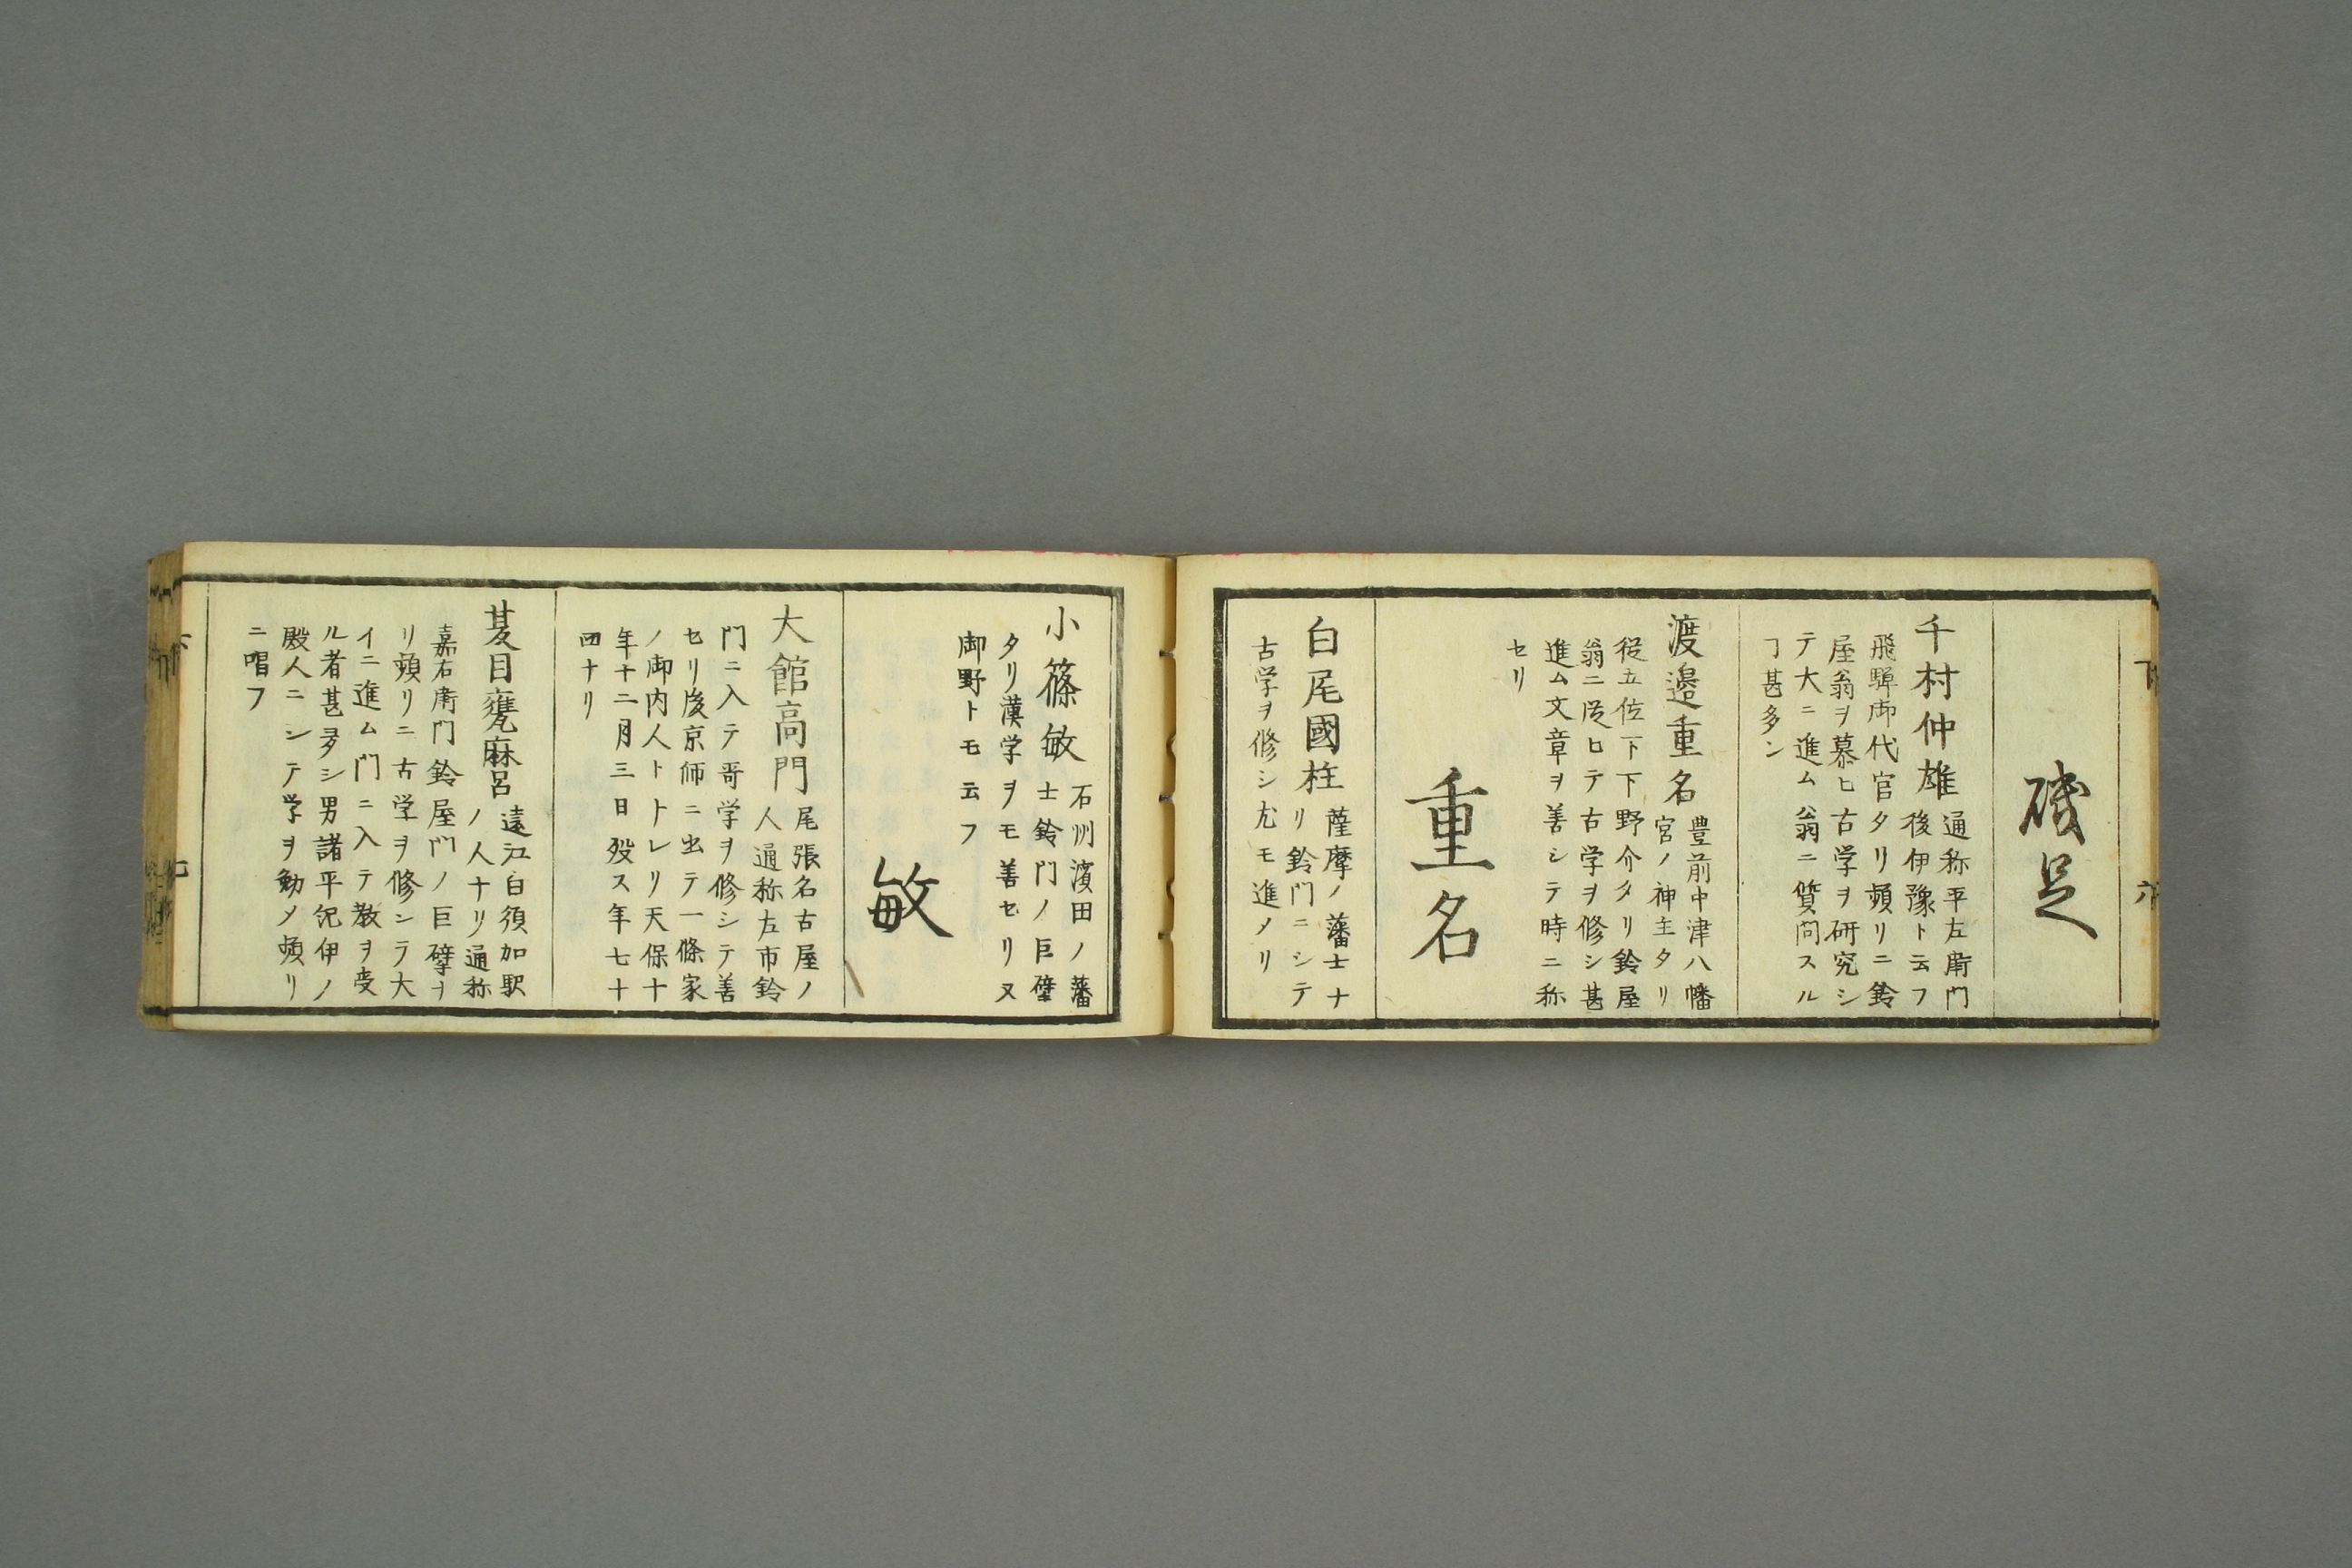 磯足
千村仲雄
通称平左衛門
後伊豫ト云フ
飛騨御代官タリ頻リニ鈴
屋翁ヲ慕ヒ古学ヲ研究シ
テ大ニ進ム翁ニ質問スル
ヿ甚多シ
渡邉重名
豊前中津八幡
宮ノ神主タリ
従五佐下下野介タリ鈴屋
翁ニ従ヒテ古学ヲ修シ甚
進ム文章ヲ善シテ時ニ称
セリ
重名
白尾國柱
薩摩ノ藩士ナ
リ鈴門ニシテ
古学ヲ修シ尤モ進メリ
小篠敏
石州濱田ノ藩
士鈴门ノ巨壁
タリ漢学ヲモ善セリ又
御野トモ云フ
敏
大館高門
尾張名古屋ノ
人通称左市鈴
门ニ入テ哥学ヲ修シテ善
セリ後京師ニ出テ一條家
ノ御内人トナレリ天保十
年十二月三日殁ス年七十
四ナリ
夏目甕麻呂
遠江白須加駅
ノ人ナリ通称
嘉右衛门鈴屋门ノ巨擘ナ
リ頻リニ古学ヲ修シテ大
イニ進ム门ニ入テ教ヲ受
ル者甚多シ男諸平紀伊ノ
殿人ニシテ学ヲ勤メ頻リ
ニ唱フ